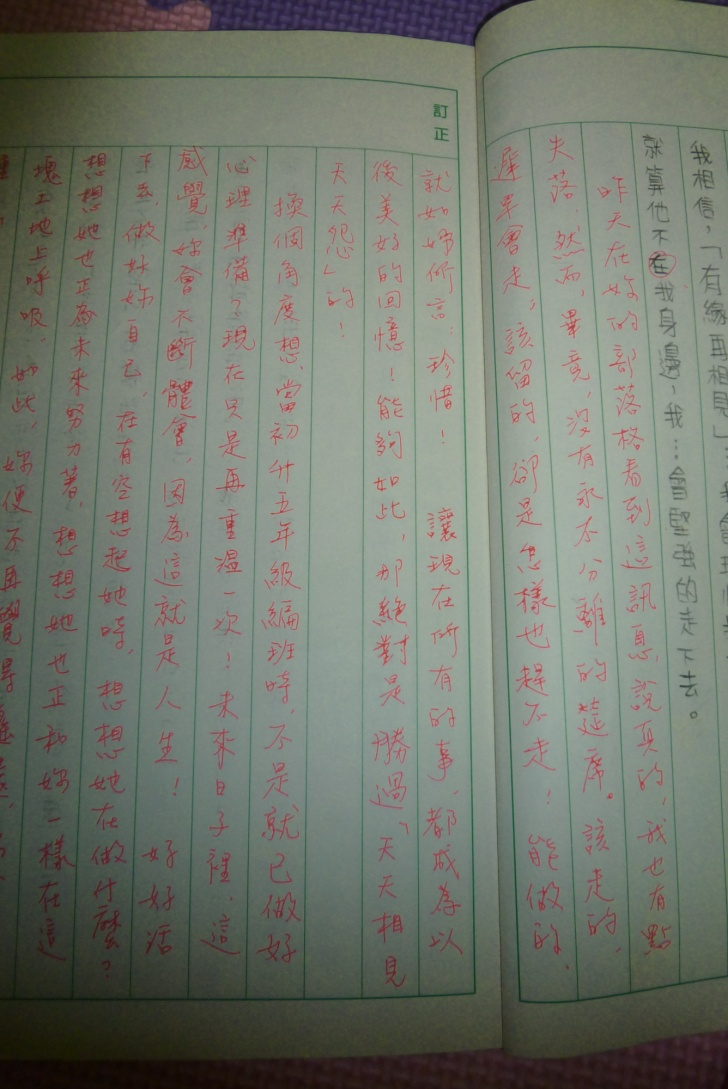 我相信，「有緣再相見」…我會
就算他不在我身邊，我…會堅強的走下去。
昨天在妳的部落格看到這訊息，說真的，我也有點
失落，然而，畢竟，沒有永不分離的筵席。該走的，
遲早會走，該留的，卻是怎樣也趕不走！能做的，
訂正
就如妳所言：珍惜！讓現在所有的事，都成為以
後美好的回憶！能夠如此，那絕對是勝過「天天相見
天天怨」的！
換個角度想，當初升五年級編班時，不是就已做好
心理準備？現在只是再重溫一次！未來日子裡，這
感覺，妳會不斷體會，因為，這就是人生！好好活
下去，做好妳自己，在有空想起她時，想想她在做什麼？
想想她也正為未來努力著，想想她也正和妳一樣在這
塊土地上呼吸，如此，妳便不再覺得